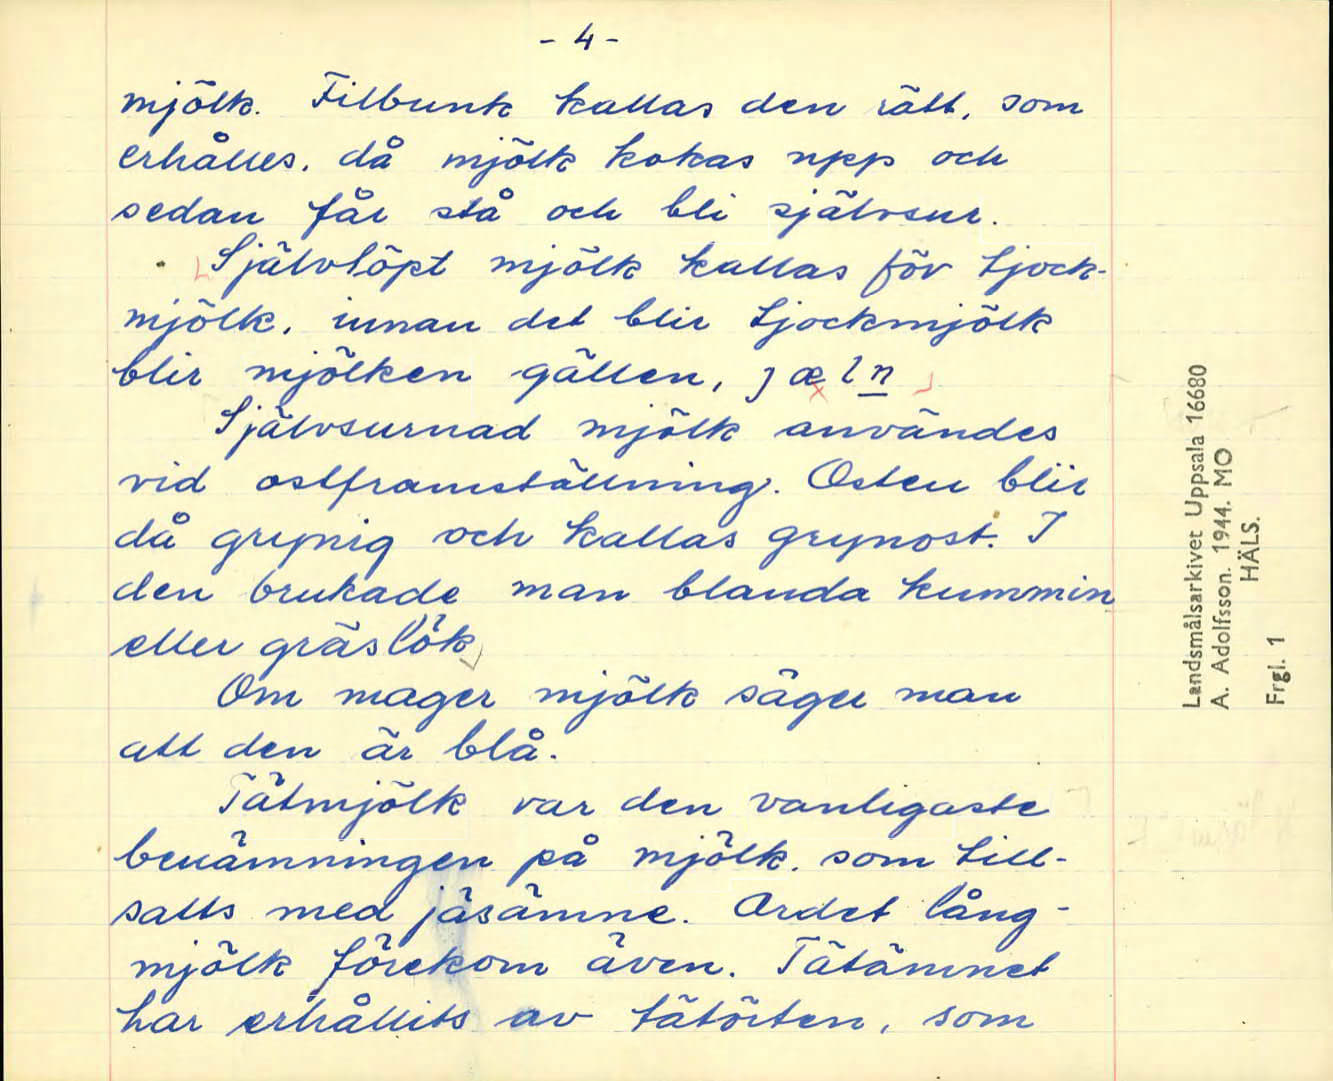 - 4 -
mjölk. Filbunk kallas den rätt, som
erhålles, då mjölk kokas upp och
sedan får stå och bli självsur.
Självlöpt mjölk kallas för tjock-
mjölk, innan det blir tjockmjölk
blir mjölken gällen, jæln
Självsurnad mjölk användes
vid ostframställning. Osten blir
då grynig och kallas grynost. I
den brukade man blanda kummin
eller gräslök
Om mager mjölk säger man
att den är blå.
Tätmjölk var den vanligaste
benämningen på mjölk, som till-
satts med jäsämne. Ordet lång-
mjölk förekom även. Tätämnet
har erhållits av tätörten, som
Landsmålsarkivet Uppsala 16680
A. Adolfsson. 1944. MO
HÄLS.
Frgl. 1